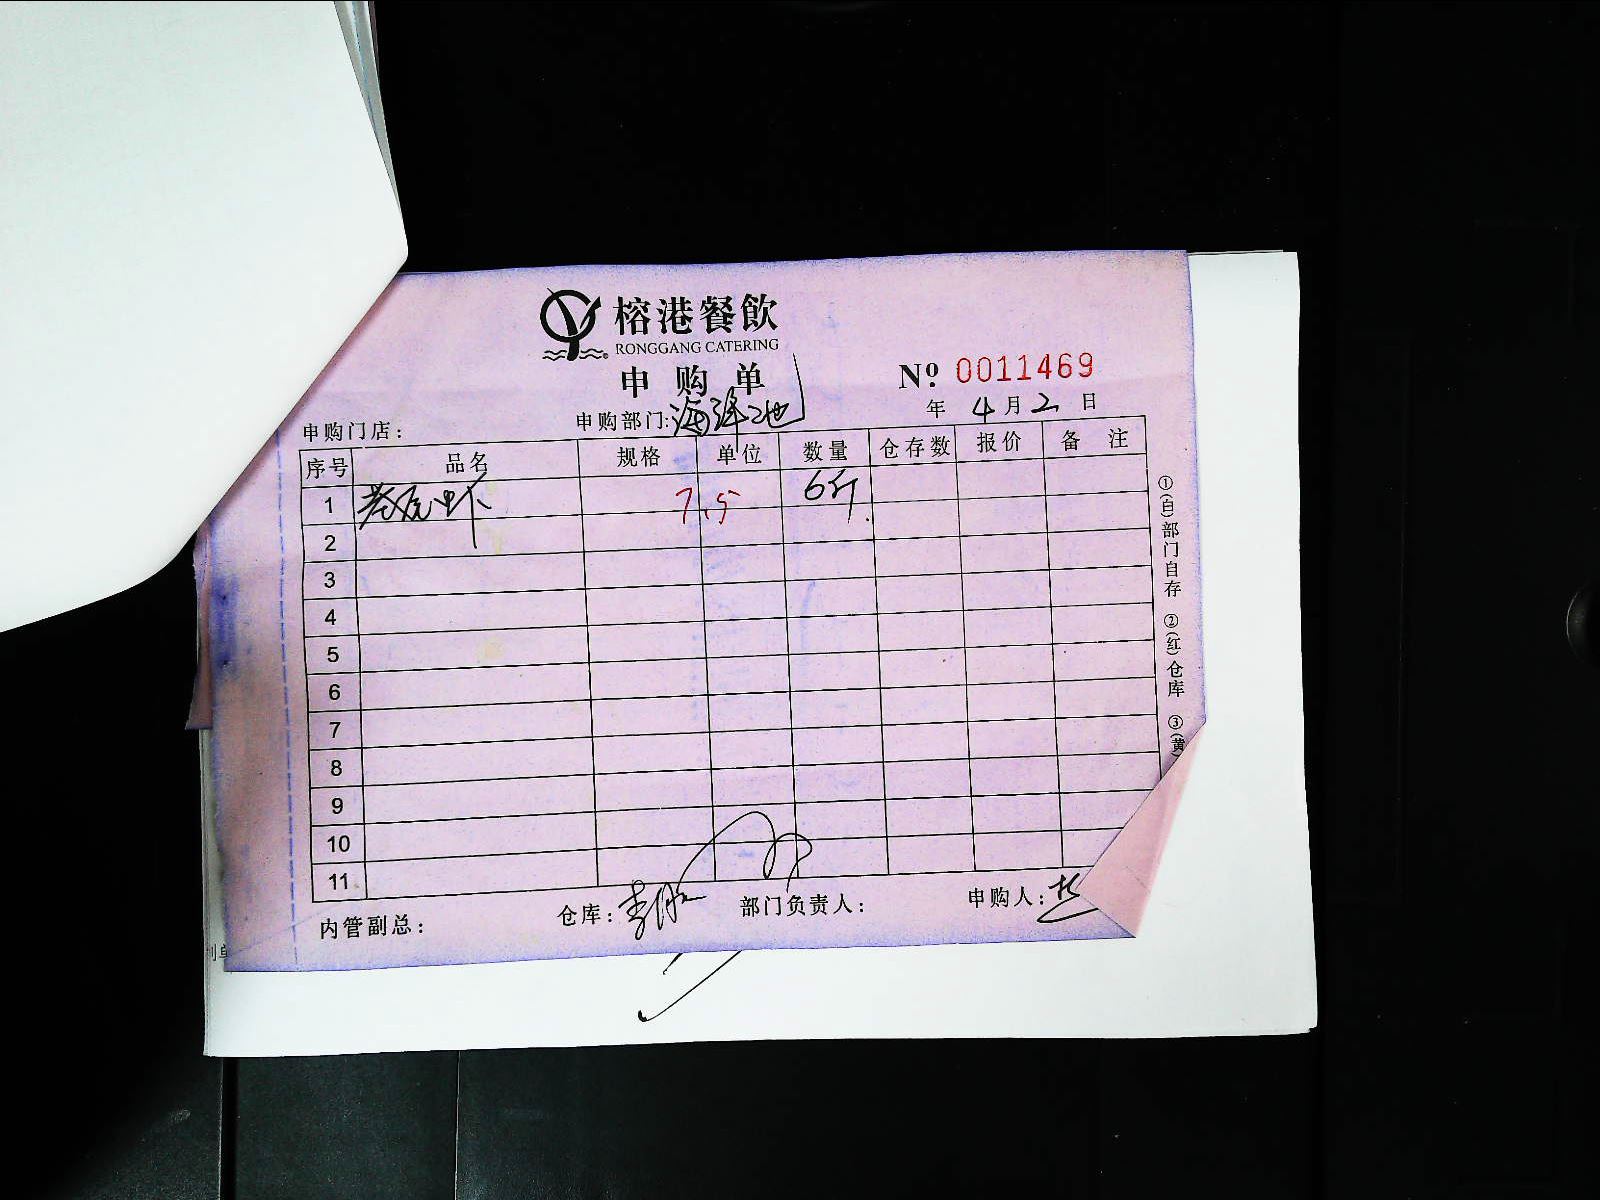 榕港餐飲
RONGGANG CATERING
申购单
Nº 0011469
年 4月2日
申购门店：
申购部门：海洋池
序号 品名 规格 单位 数量 仓存数 报价 备注
1 老虎虾 7.5 6斤
2
3
4
5
6
7
8
9
10
11
内管副总： 仓库：李 部门负责人： 申购人：
①(白)部门自存 ②(红)仓库 ③(黄)